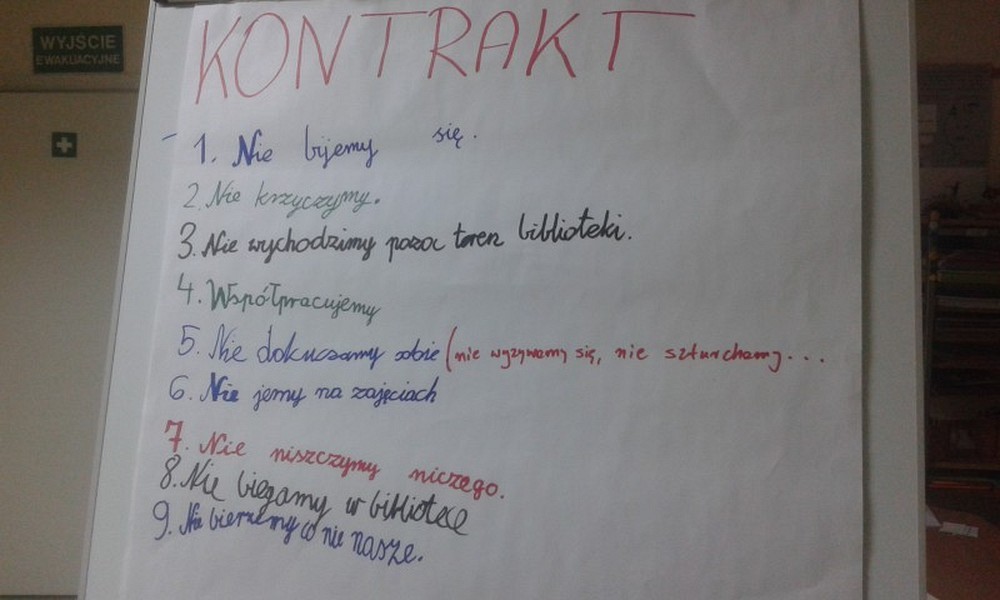 WYJŚCIE
EWAKUACYJNE
KONTRAKT
1. Nie bijemy się.
2. Nie krzyczymy.
3. Nie wychodzimy pozoc teren biblioteki.
4. Współpracujemy
5. Nie dokuczamy sobie (nie wyzywamy się, nie szturchamy...
6. Nie jemy na zajęciach
7. Nie niszczymy niczego.
8. Nie biegamy w bibliotece
9. Nie bierzemy co nie nasze.